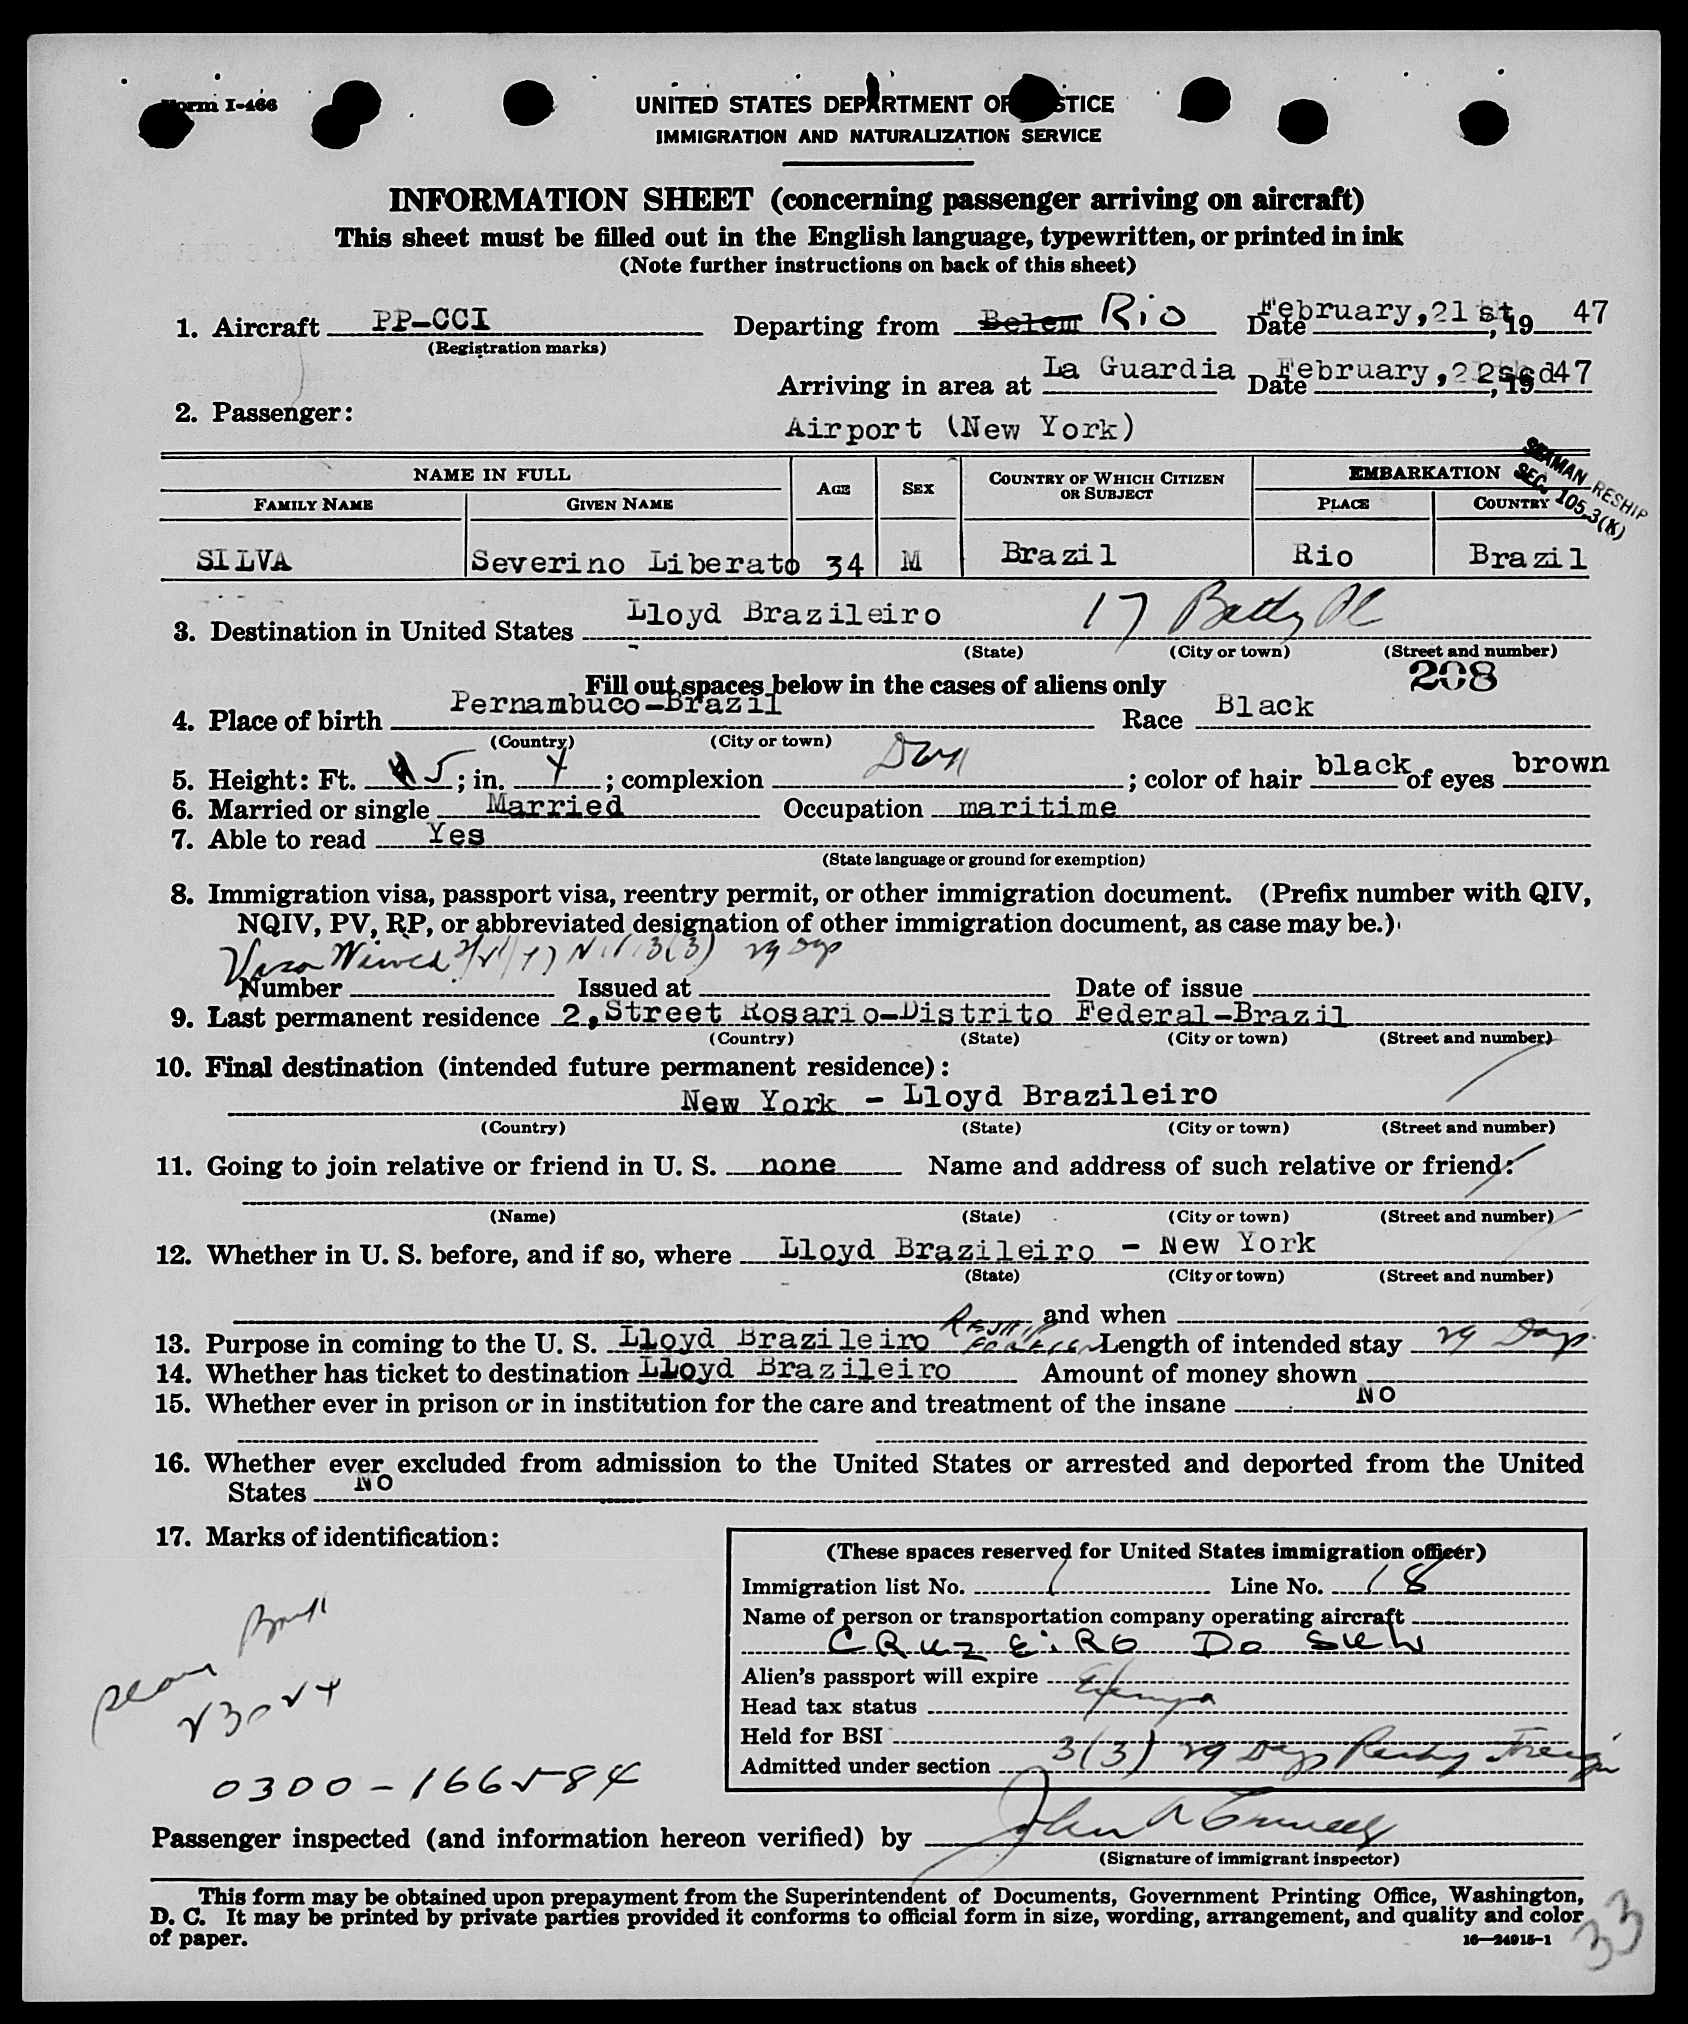 Form I-466
UNITED STATES DEPARTMENT OF JUSTICE
IMMIGRATION AND NATURALIZATION SERVICE
INFORMATION SHEET (concerning passenger arriving on aircraft)
This sheet must be filled out in the English language, typewritten, or printed in ink
(Note further instructions on back of this sheet)
1. Aircraft PP-CCI Departing from Belem Rio Date February, 21st, 19 47
(Registration marks)
Arriving in area at La Guardia Date February, 22, 19 47
2. Passenger: Airport (New York)
SEAMAN RESHIP
SEC. 105.3(K)
NAME IN FULL AGE SEX COUNTRY OF WHICH CITIZEN OR SUBJECT EMBARKATION
FAMILY NAME GIVEN NAME PLACE COUNTRY
SILVA Severino Liberato 34 M Brazil Rio Brazil
3. Destination in United States Lloyd Brazileiro 17 Batty Pl
(State) (City or town) (Street and number)
208
Fill out spaces below in the cases of aliens only
4. Place of birth Pernambuco-Brazil Race Black
(Country) (City or town)
5. Height: Ft. 5; in. 4; complexion Dark; color of hair black of eyes brown
6. Married or single Married Occupation maritime
7. Able to read Yes
(State language or ground for exemption)
8. Immigration visa, passport visa, reentry permit, or other immigration document. (Prefix number with QIV,
NQIV, PV, RP, or abbreviated designation of other immigration document, as case may be.)
Visa Waived 3(3) 29 Days
Number Issued at Date of issue
9. Last permanent residence 2, Street Rosario-Distrito Federal-Brazil
(Country) (State) (City or town) (Street and number)
10. Final destination (intended future permanent residence):
New York - Lloyd Brazileiro
(Country) (State) (City or town) (Street and number)
11. Going to join relative or friend in U. S. none Name and address of such relative or friend:
(Name) (State) (City or town) (Street and number)
12. Whether in U. S. before, and if so, where Lloyd Brazileiro - New York
(State) (City or town) (Street and number)
and when
13. Purpose in coming to the U. S. Lloyd Brazileiro Reship Foreign Length of intended stay 29 Days
14. Whether has ticket to destination Lloyd Brazileiro Amount of money shown
15. Whether ever in prison or in institution for the care and treatment of the insane NO
16. Whether ever excluded from admission to the United States or arrested and deported from the United
States NO
17. Marks of identification:
(These spaces reserved for United States immigration officer)
Immigration list No. 1 Line No. 18
Name of person or transportation company operating aircraft
CRUZEIRO DO SUL
Alien's passport will expire
Head tax status Exempt
Held for BSI
Admitted under section 3(3) 29 Days Reship Foreign
0300-166584
Passenger inspected (and information hereon verified) by
(Signature of immigrant inspector)
This form may be obtained upon prepayment from the Superintendent of Documents, Government Printing Office, Washington,
D. C. It may be printed by private parties provided it conforms to official form in size, wording, arrangement, and quality and color
of paper.
16—24915-1
33